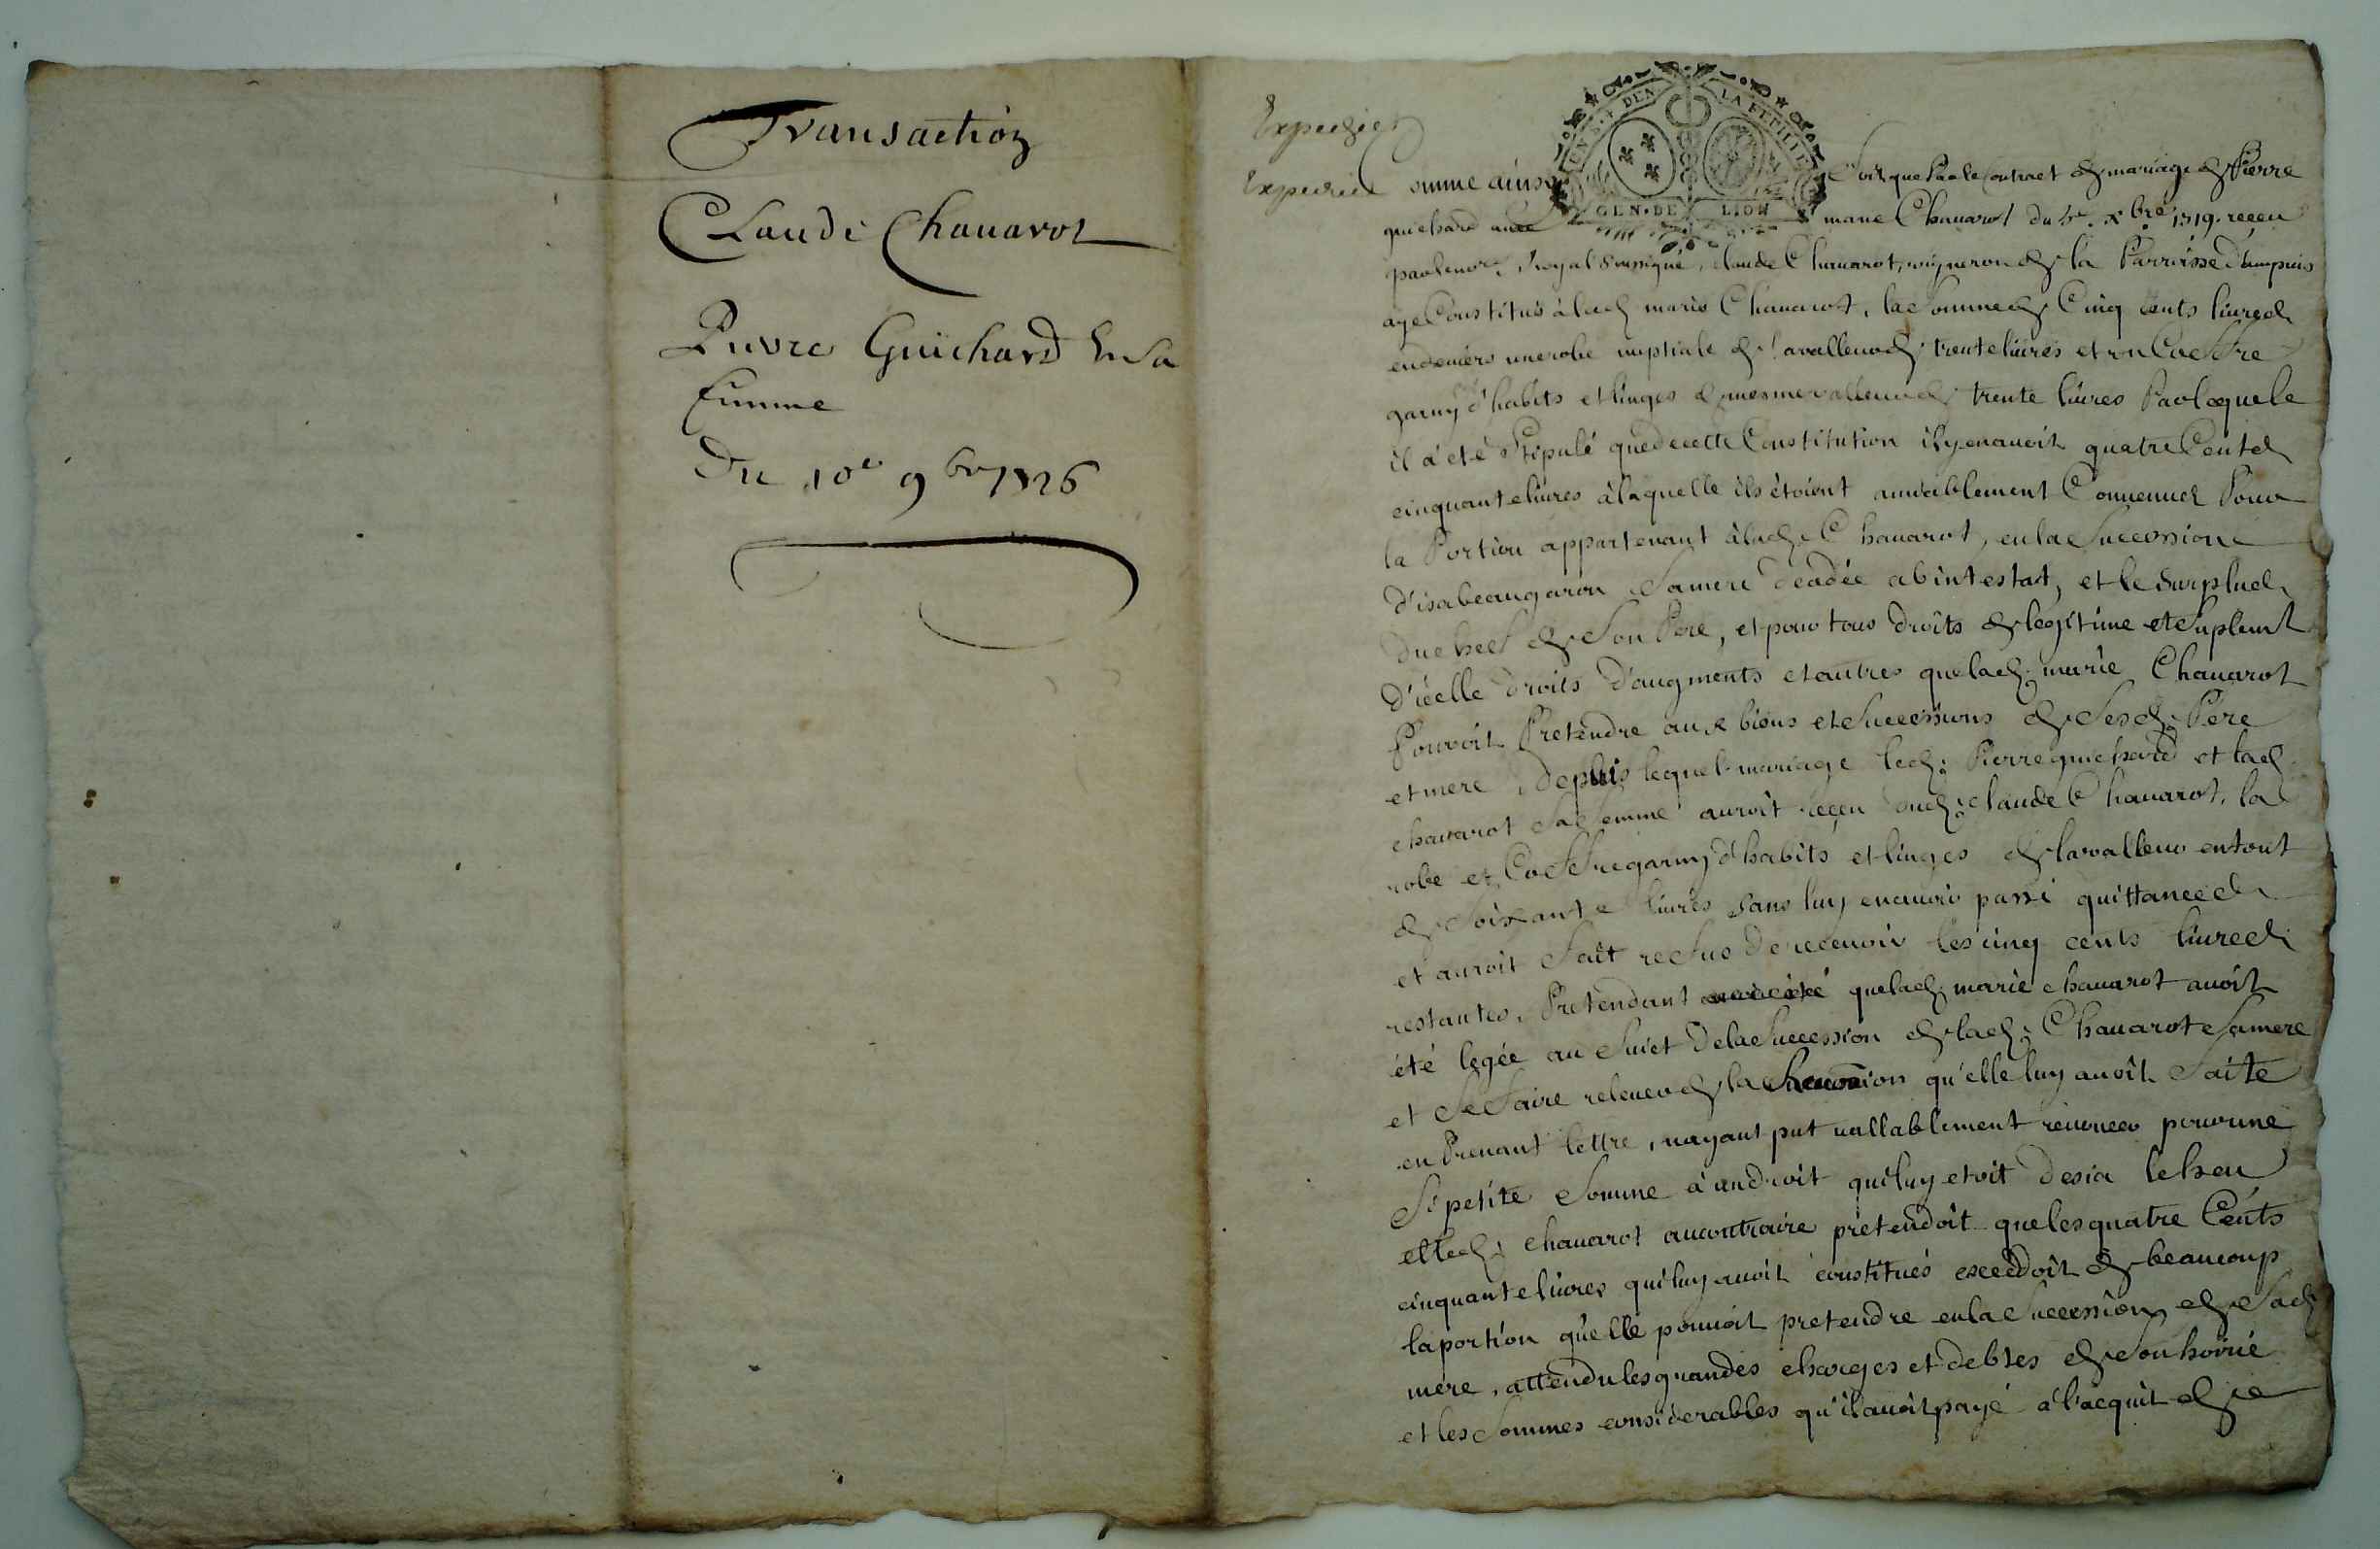 Transaction
Claude Chauarot
Pierre Guichard & Sa
femme
Du 10e 9bre 1726
Expediée
Expediée
GEN·DE LION
omme ainsy Soit que par le Contract de mariage de Pierre
guichard auec marie Chauarot du xbre 1719. receu
par le nore Royal Soussigné, claude Chauarot, vigneron de la Parroisse d'ampuis
aye Constitué à lad marie Chauarot, la Somme de Cinq cents liures
en deniers une robe nuptiale de la valleur de trente liures et un Coffre
garny d'habits et linges de mesme valleur de trente liures Par lequel
il a eté Stipulé que de cette Constitution il y en auoit quatre Cents
cinquante liures à laquelle ils étoient amiablement Conuenues Pour
la Portion appartenant à lad Chauarot, en la Succession
d'isabeau garon Sa mere decadée abintestat, et le Surplus
du chef de Son Pere, et pour tous droits de legitime et Suplemt
d'icelle droits d'augments et autres que lad marie Chauarot
Pouuoit Pretendre aux biens et Successions de Sesd Pere
et mere, depuis lequel mariage led Pierre guichard et lad
chauarot Sa femme auroit reçeu dud claude Chauarot, la
robe et Coffre garny d'habits et linges de la valleur en tout
de Soixante liures Sans luy en auoir passé quittance
et auroit fait refus de receuoir les cinq cents liures
restantes, Pretendant que lad marie chauarot auoit
été legée au Suiet de la Succession de lad Chauarot Sa mere
et Se faire releuer de la qu'elle luy auoit faite
en Prenant lettre, nayant put vallablement renoncer pour une
Si petite Somme à un droit qui luy etoit desia
et led chauarot au contraire pretendoit que les quatre Cents
cinquante liures qui luy auoit constitués exceddoit de beaucoup
la portion qu'elle pouuoit pretendre en la Succession de Sad
mere, attendu les grandes charges et debtes de Son hoirie
et les Sommes considerables qu'il auoit payé à l'acquit de